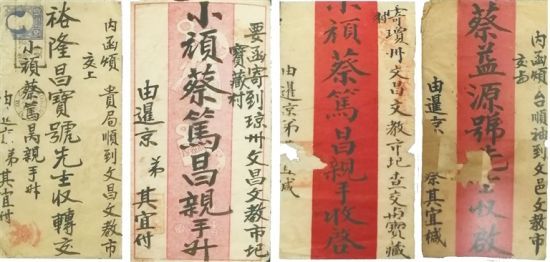 內函煩 貴局順到文昌文教市
交上
裕隆昌寶號先生收轉交
小頑蔡篤昌親手升
由 弟其宜付
要函寄到琼州文昌文教市圯
寶藏村
小頑蔡篤昌親手升
由暹京 弟 其宜付
寄瓊州文昌文教市圯查交 寶藏
小頑蔡篤昌親手收啓
由暹京弟
內函煩 台順袖到文邑文教市
交
蔡益源號 收啟
由暹京 蔡其宜緘